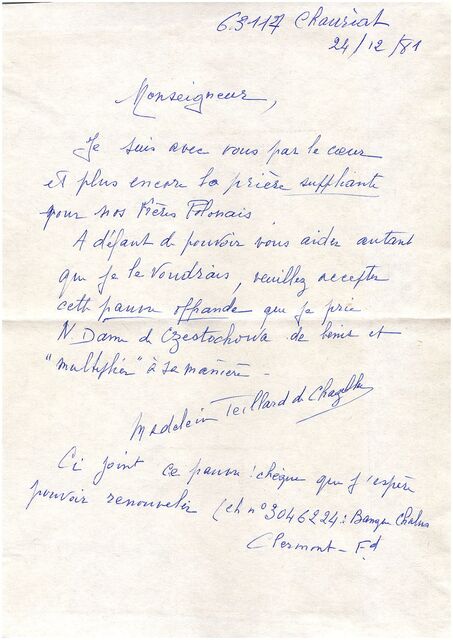 63117 Chauriat
24/12/81
Monseigneur,
Je suis avec vous par le cœur
et plus encore la prière suppliante
pour nos Frères Polonais
A défaut de pouvoir vous aider autant
que je le voudrais, veuillez accepter
cette pauvre offrande que je prie
N. Dame de Czestochowa de bénir et
"multiplier" à sa manière -
Madeleine Teillard de Chazelles
Ci joint ce pauvre chèque que j'espère
pouvoir renouveler (ch n° 3046224: Banque Chalus
Clermont-Fd